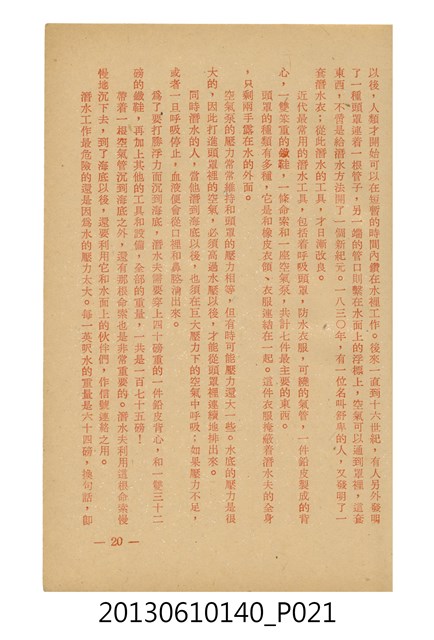 以後，人類才開始可以在短暫的時間內鑽在水裡工作。後來一直到十六世紀，有人另外發明
了一種頭罩連着一根管子，另一端的管口則繫在水面上的浮標上，空氣可以通到罩裡，這套
東西，不啻是給潛水方法開了一個新紀元。一八三〇年，有一位名叫舒卑的人，又發明了一
套潛水衣；從此潛水的工具，才日漸改良。
近代最常用的潛水工具，包括着呼吸頭罩，防水衣服，可撓的氣管，一件鉛皮製成的背
心，一雙笨重的鐵鞋，一條命索和一座空氣泵，共計七件最主要的東西。
頭罩的種類有多種，它是和橡皮衣領、衣服連結在一起。這件衣服掩蔽着潛水夫的全身
，只剩兩手露在水的外面。
空氣泵的壓力常常維持和頭罩的壓力相等，但有時可能壓力還大一些。水底的壓力是很
大的，因此打進頭罩裡的空氣，必須高過水壓以後，才能從頭罩裡連慢地排出來。
同時潛水的人，當他潛到海底以後，也須在巨大壓力下的空氣中呼吸；如果壓力不足，
或者一旦呼吸停止，血液便會從口裡和鼻腔湧出來。
爲了要打勝浮力而沉到海底，潛水夫需要穿上四十磅重的一件鉛皮背心，和一雙三十二
磅的鐵鞋，再加上其他的工具和設備，全部的重量，一共是一百七十五磅！
帶着一根空氣管沉到海底之外，還有那根命索也是非常重要的。潛水夫利用這根命索慢
慢地沉下去，到了海底以後，還要利用它和水面上的伙伴們，作信號連絡之用。
潛水工作最危險的還是因爲水的壓力太大。每一英呎水的重量是六十四磅，換句話，即
— 20 —
20130610140_P021